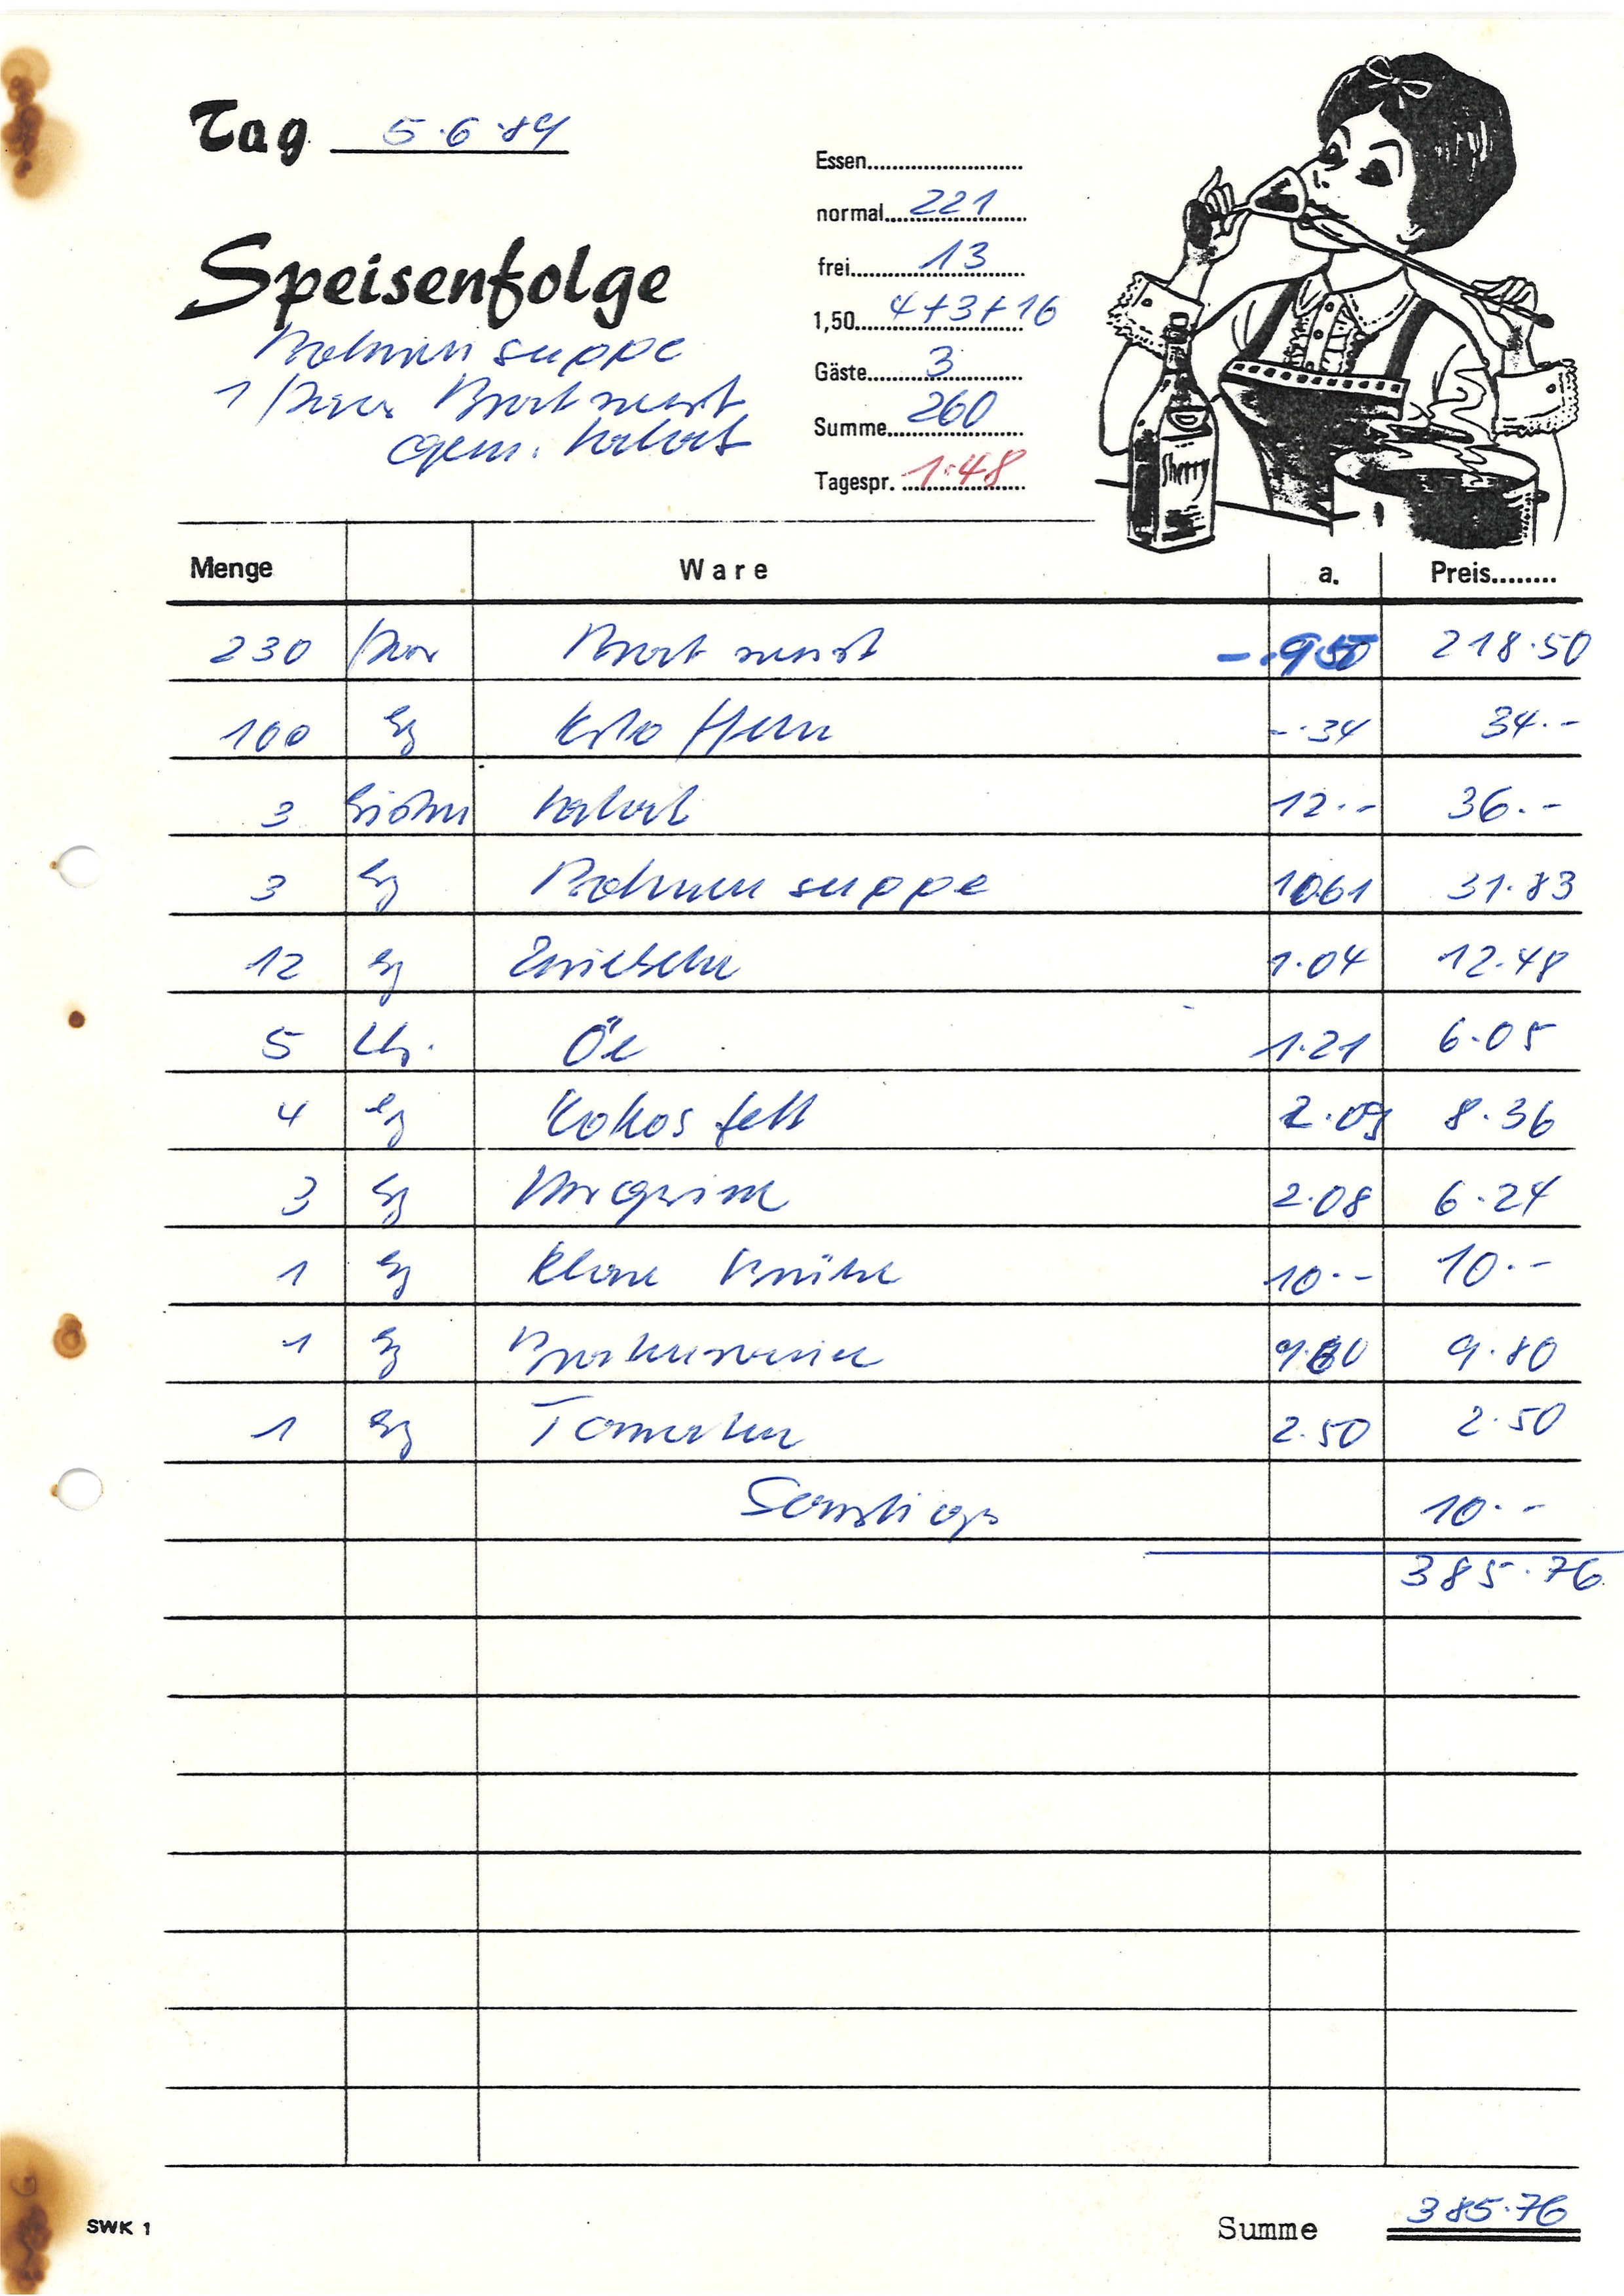 Tag 5.6.89
Essen
normal 221
frei 13
1,50 4+3+16
Gäste 3
Summe 260
Tagespr. 1.48
Speisenfolge
Bohnensuppe
1 Paar Bratwurst
gem. Salat
Sherry
Menge Ware a. Preis
230 Paar Bratwurst -.950 218.50
100 kg Kartoffeln -.34 34.-
3 Salat 12.- 36.-
3 kg Bohnensuppe 10.61 31.83
12 kg Zwiebeln 1.04 12.48
5 Ltr. Öl 1.21 6.05
4 kg Kokosfett 2.09 8.36
3 kg Margarine 2.08 6.24
1 kg Klare Brühe 10.- 10.-
1 kg 9.80 9.80
1 kg Tomaten 2.50 2.50
Sonstiges 10.-
385.76
SWK 1
Summe 385.76